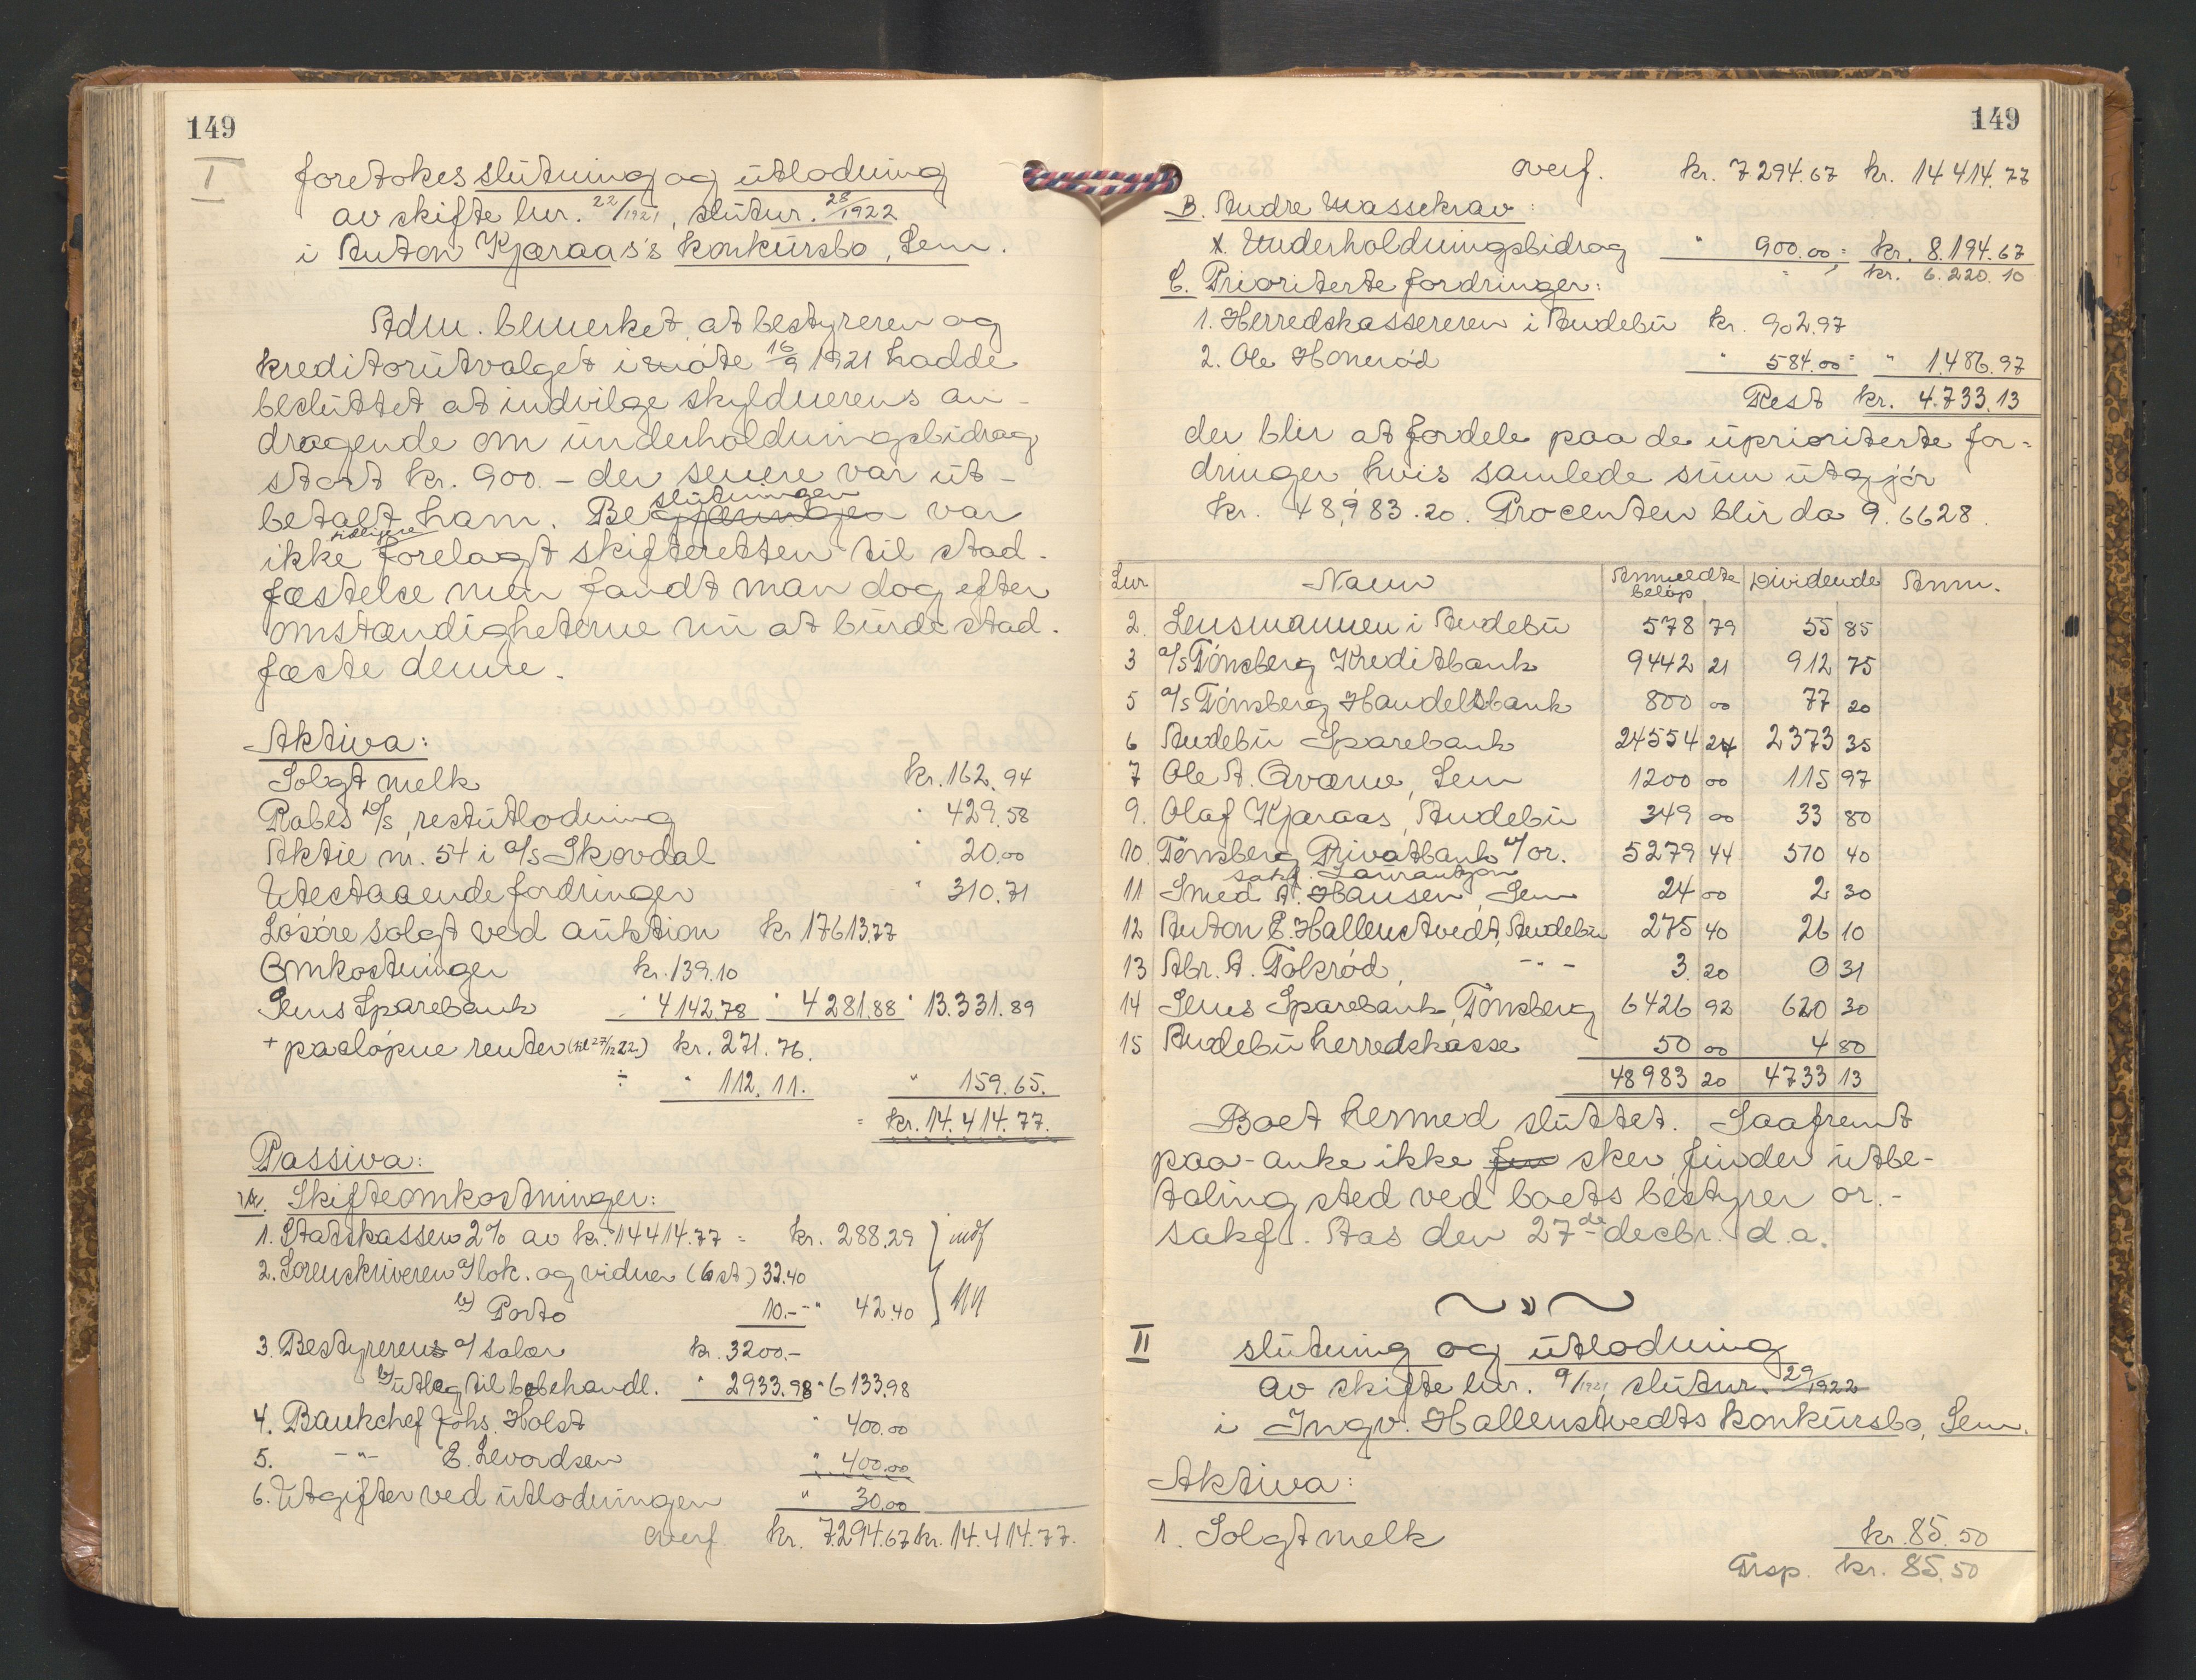 149
I
foretokes slutning og utlodning
av skifte lnr. 22/1921, slutnr. 28/1922
i Anton Kjæraas's konkursbo, Sem.
Adm. bemerket, at bestyreren og
kreditorutvalget i møte 16/9 1921 hadde
besluttet at indvilge skyldnerens an-
dragende om underholdningsbidrag
stort kr. 900.- der senere var ut-
slutningen
betalt ham. Begjæringen var
tidligere
ikke forelagt skifteretten til stad-
fæstelse men fandt man dog efter
omstændigheterne nu at burde stad-
fæste denne.
Aktiva:
Solgt melk kr. 162.94
Rabes D/S, restutlodning " 429.58
Aktie nr. 54 i A/S Skovdal " 20.00
Utestaaende fordringer " 310.71
Løsøre solgt ved auktion kr 17613.77
Omkostninger kr. 139.10
Sems Sparebank " 4142.78 " 4281.88 " 13.331.89
+ paaløpne renter (til 27/12 22.) kr. 271.76.
÷ " 112.11. " 159.65.
= kr. 14.414.77.
Passiva:
A. Skifteomkostninger:
1. Statskassen 2% av kr. 14414.77 = kr. 288.29
2. Sorenskriveren a/ lok. og vidner (6 st) 32.40
b/ Porto 10.- - " 42.40
3. Bestyrerens a/ salær kr. 3200.-
b/ utlæg til bobehandl. " 2933.98 " 6133.98
4. Bankchef Johs. Holst " 400.00
5. -"- E. Sevordsen " 400.00
6. Utgifter ved utlodningen " 30.00
overf. kr. 7.294.67 kr. 14.414.77.
149
overf. kr. 7294.67 kr. 14414.77
B. Andre massekrav:
1. Underholdningsbidrag " 900.00 = kr. 8.194.67
kr. 6.220.10
C. Prioriterte fordringer:
1. Herredskassereren i Andebu kr. 902.97
2. Ole Honerød " 584.00 = " 1.486.97
Rest kr. 4.733.13
der blir at fordele paa de uprioriterte for=
dringer, hvis samlede sum utgjør
kr. 48,983.20. Procenten blir da 9.6628.
Lnr Navn Anmeldte beløp Dividende Anm.
2. Lensmannen i Andebu 578 79 55 85
3 A/S Tønsberg Kreditbank 9442 21 912 75
5 A/S Tønsberg Handelsbank 800 00 77 20
6 Andebu Sparebank 24554 24 2373 35
7 Ole A. Qværne, Sem 1200 00 115 97
9. Olaf Kjæraas, Andebu 349 00 33 80
10. Tønsberg Privatbank v/ or. 5279 44 510 40
sakf. Laurantzon
11 Smed A. Hansen, Sem 24 00 2 30
12 Anton E. Hallenstvedt, Andebu 275 40 26 10
13 Abr. A. Tokrød, -"- 3. 20 0 31
14 Sems Sparebank, Tønsberg 6426 92 620 30
15 Andebu herredskasse 50 00 4 80
48983 20 4733 13
Boet hermed sluttet. Saafremt
paa-anke ikke sker, finder utbe-
taling sted ved boets bestyrer or.-
sakf. Aas den 27de decbr. d.a.
II
slutning og utlodning
av skifte lnr. 9/1921, slutnr. 29/1922
i Ingv. Hallenstvedts konkursbo, Sem.
Aktiva:
1. Solgt melk kr. 85.50
Trsp. kr. 85.50